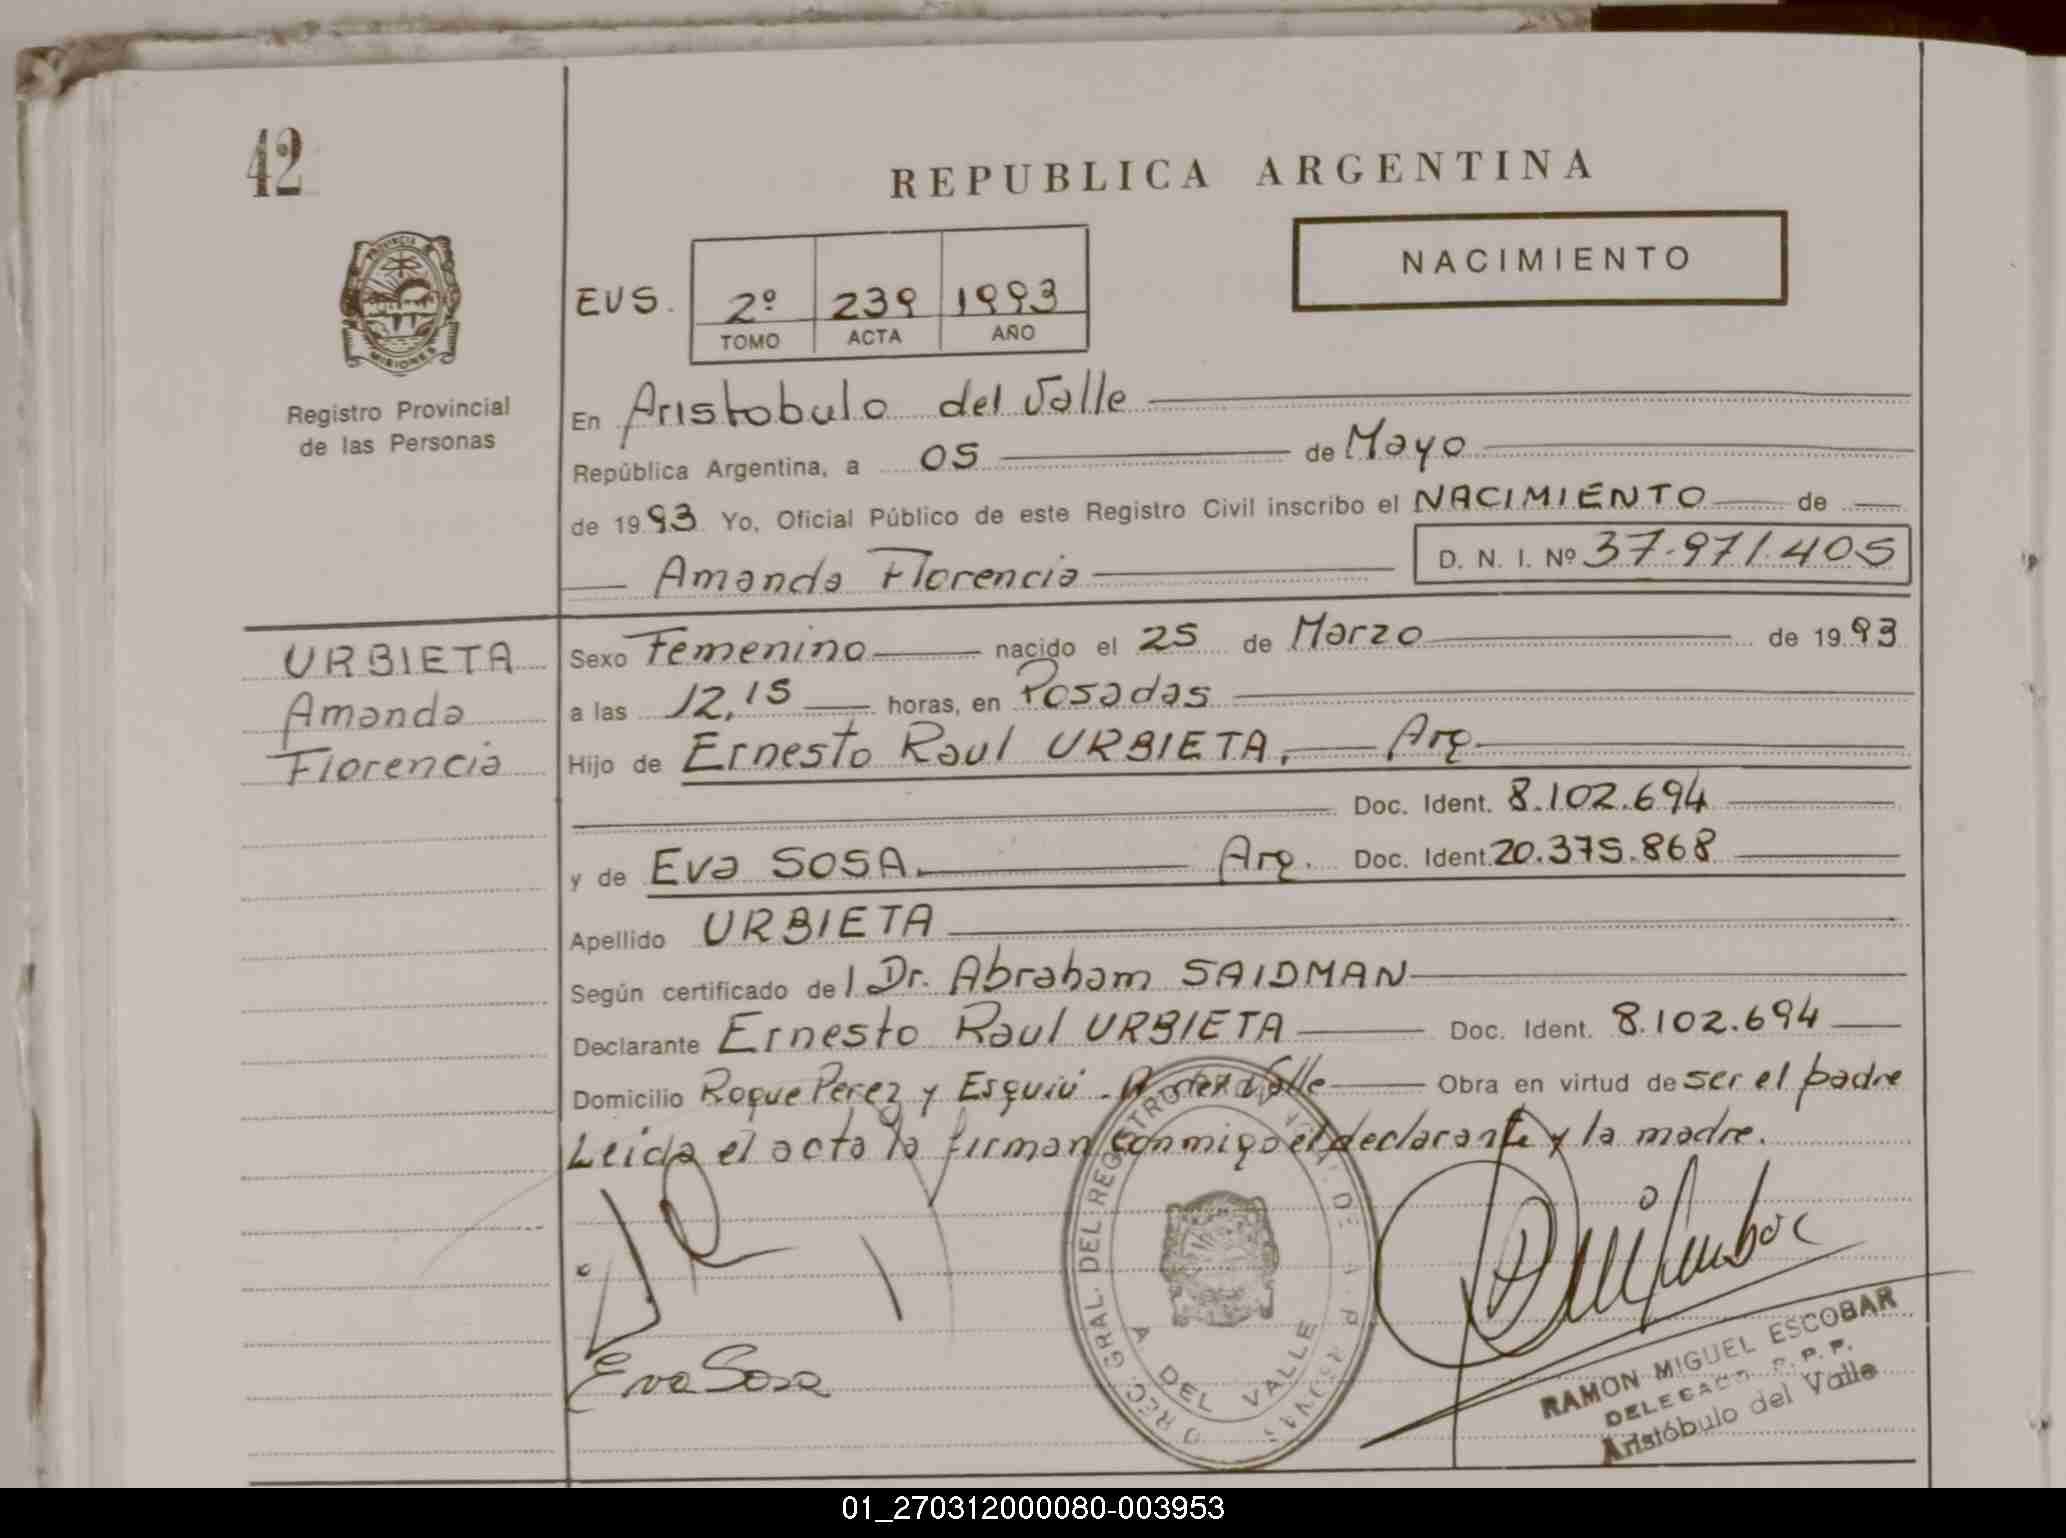 42
REPUBLICA ARGENTINA
PROVINCIA DE
MISIONES
Registro Provincial
de las Personas
NACIMIENTO
EUS. 2º 239 1993
TOMO ACTA AÑO
En Aristobulo del Valle
República Argentina, a 05 de Mayo
de 1993 Yo, Oficial Público de este Registro Civil inscribo el NACIMIENTO de
Amanda Florencia D. N. I. Nº 37.971.405
URBIETA
Amanda
Florencia
Sexo Femenino nacido el 25 de Marzo de 1993
a las 12,15 horas, en Posadas
Hijo de Ernesto Raul URBIETA, Arg.
Doc. Ident. 8.102.694
y de Eva SOSA. Arg. Doc. Ident. 20.375.868
Apellido URBIETA
Según certificado del Dr. Abraham SAIDMAN
Declarante Ernesto Raul URBIETA Doc. Ident. 8.102.694
Domicilio Roque Perez y Esquiú - A. del Valle Obra en virtud de ser el padre
Leida el acta la firman conmigo el declarante y la madre.
Eva Sosa
GRAL. DEL REGISTRO
A. DEL VALLE
RAMON MIGUEL ESCOBAR
DELEGADO R. P. P.
Aristóbulo del Valle
01_270312000080-003953